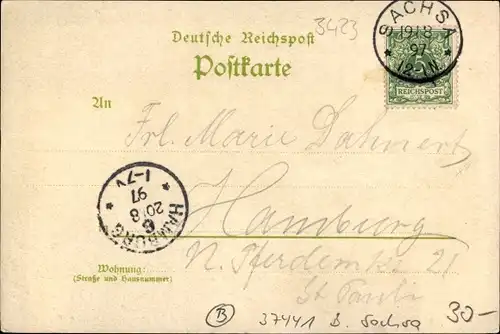 3423
Deutsche Reichspost
Postkarte
SACHSA
19/8
97
12-1N
5
REICHSPOST
An
Frl. Marie Dahmert
HAMBURG
20/8
97
1-7V
6
Hamburg
N. Pferdemkt. 21
St. Pauli
Wohnung:
(Straße und Hausnummer)
B
37441 B. Sachsa
30-